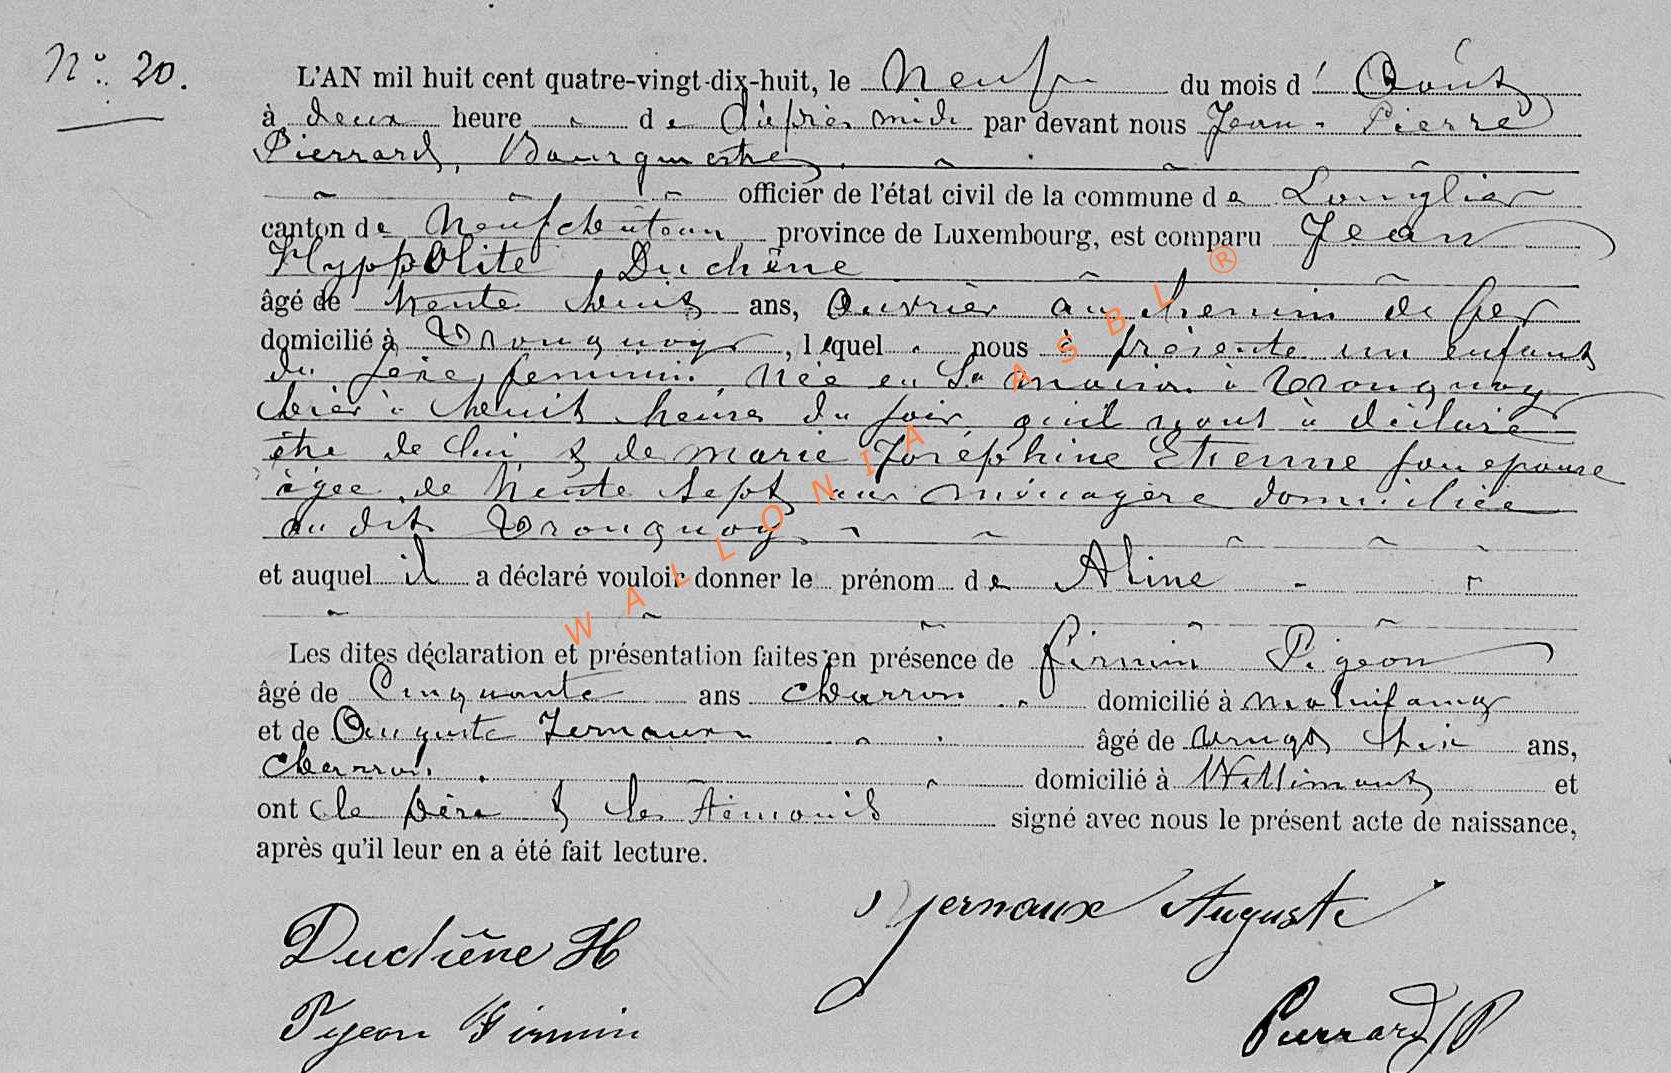 N° 20.
L'AN mil huit cent quatre-vingt-dix-huit, le Neuf du mois d' Août
à deux heure de d'après midi par devant nous Jean-Pierre
Pierrard, Bourgmestre,
officier de l'état civil de la commune de Longlier
canton de Neufchâteau, province de Luxembourg, est comparu Jean
Hyppolite Duchêne
âgé de trente huit ans, ouvrier au chemin de fer
domicilié à Tronquoy, lequel nous à présenté un enfant
du sexe feminin, Née en sa maison à Tronquoy
hier à huit heures du soir, qu'il nous à déclaré
être de lui & de marie Joséphine Etienne son epouse
âgée de trente sept ans ménagère domiciliée
au dit Tronquoy
et auquel il a déclaré vouloir donner le prénom de Aline
Les dites déclaration et présentation faites en présence de firmin Pigeon
âgé de Cinquante ans charron domicilié à molinfaing
et de Auguste Jernaux âgé de vingt six ans,
charron domicilié à Wittimont et
ont le père & les témoins signé avec nous le présent acte de naissance,
après qu'il leur en a été fait lecture.
Jernaux Auguste
Duchêne H
Pigeon Firmin
Pierrard JP
WALLONIA ASBL ®